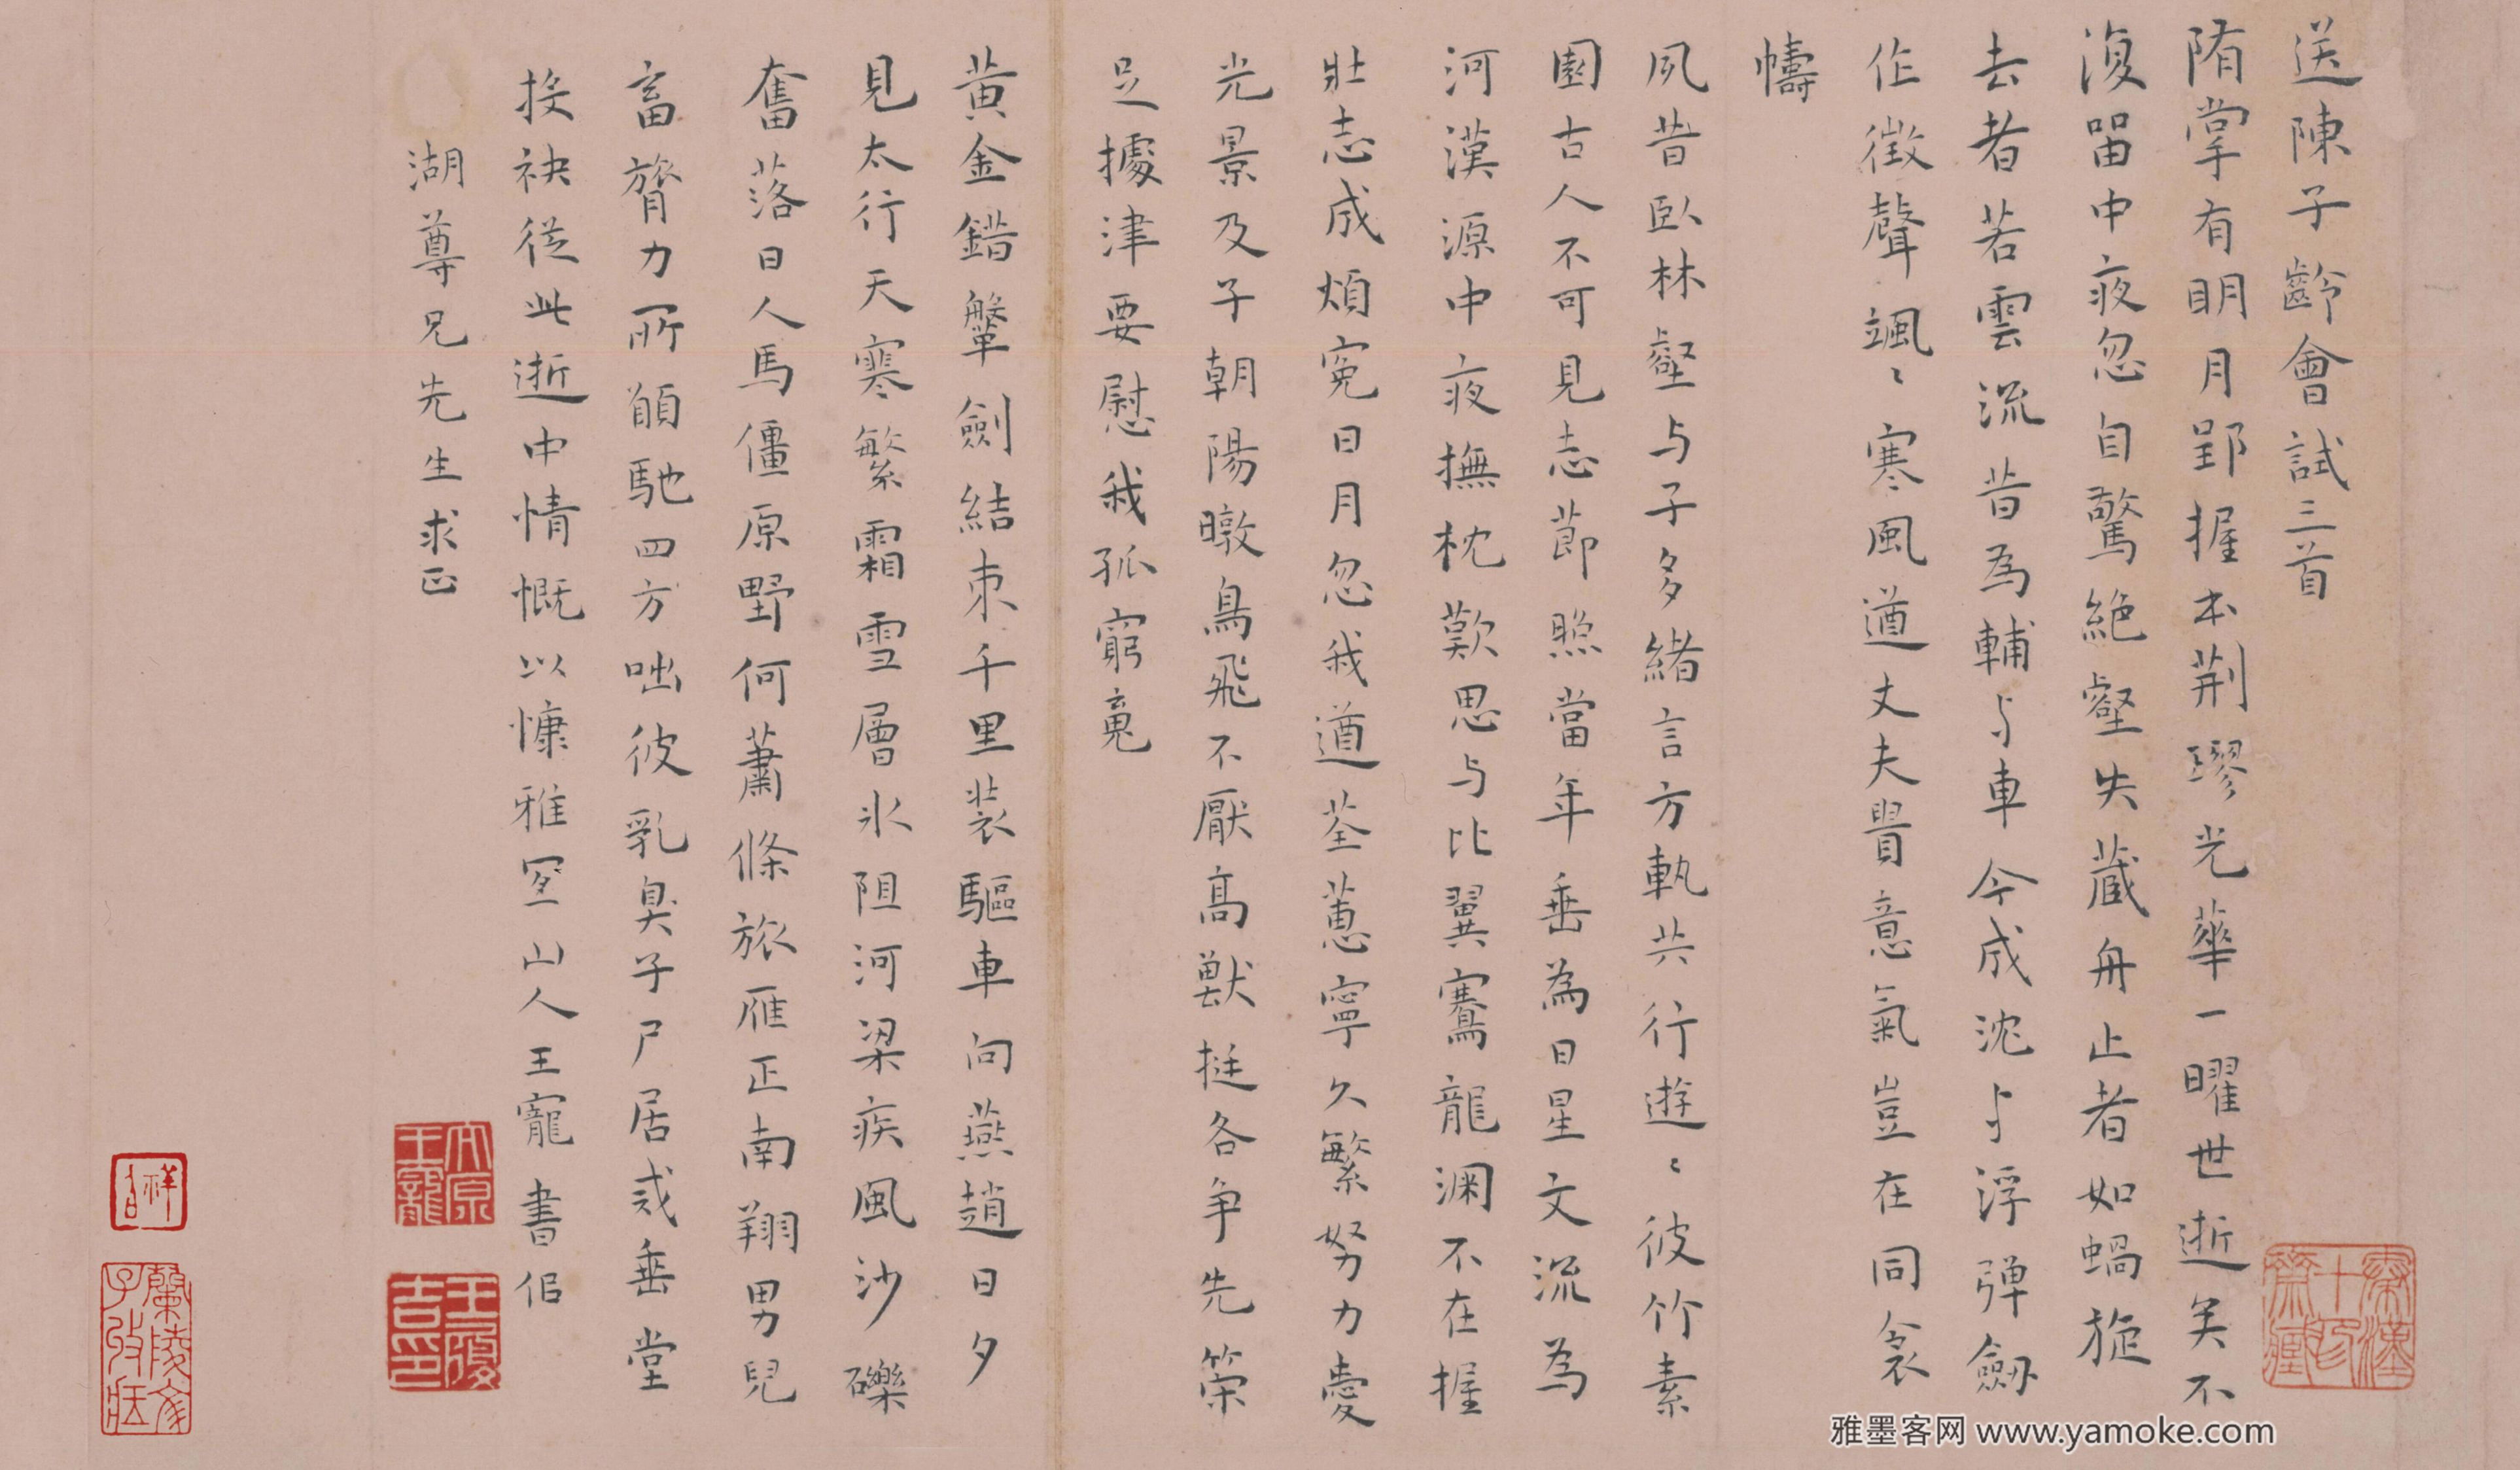 送陳子齡會試三首
隋掌有明月郢握本荆璆光華一曜世逝矣不
復留中夜忽自驚絶壑失蔵舟止者如蝸旋
去者若雲流昔為輔与車今成沈与浮彈劔
作徵聲颯〻寒風遒丈夫貴意氣豈在同衾
幬
夙昔臥林壑与子多緒言方軌共行遊〻彼竹素
園古人不可見志節照當年垂為日星文流為
河漢源中夜撫枕歎思与比翼騫龍渊不在握
壯志成煩寃日月忽我遒荃蕙寧久繁努力愛
光景及子朝陽暾鳥飛不厭高獸挺各争先榮
足據津要慰我孤窮䰟
黄金錯鞶劍結束千里裝驅車向燕趙日夕
見太行天寒繁霜雪層氷阻河梁疾風沙礫
奮落日人馬僵原野何蕭條旅雁正南翔男兒
畜膂力所願馳四方咄彼乳臭子尸居戒垂堂
投袂從此逝中情慨以慷雅宜山人王寵書似
湖尊兄先生求正
王寵
王履吉印
雅墨客网 www.yamoke.com